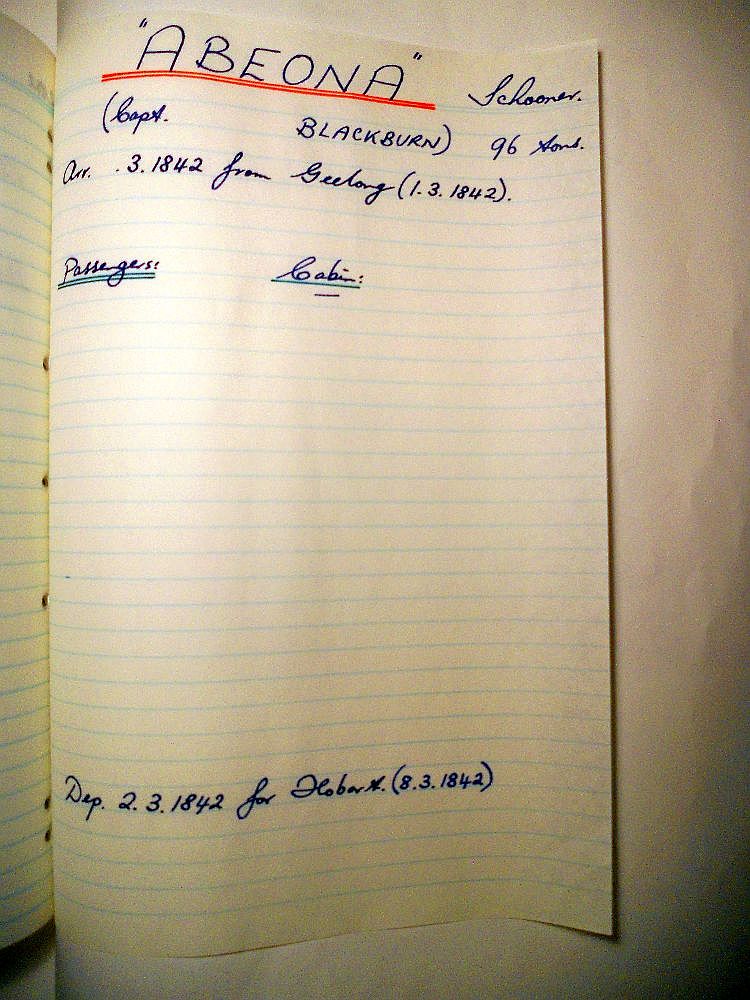 "ABEONA" Schooner.
(Capt. BLACKBURN) 96 tons.
Arr. .3.1842 from Geelong (1.3.1842).
Passengers: Cabin:
Dep. 2.3.1842 for Hobart. (8.3.1842)